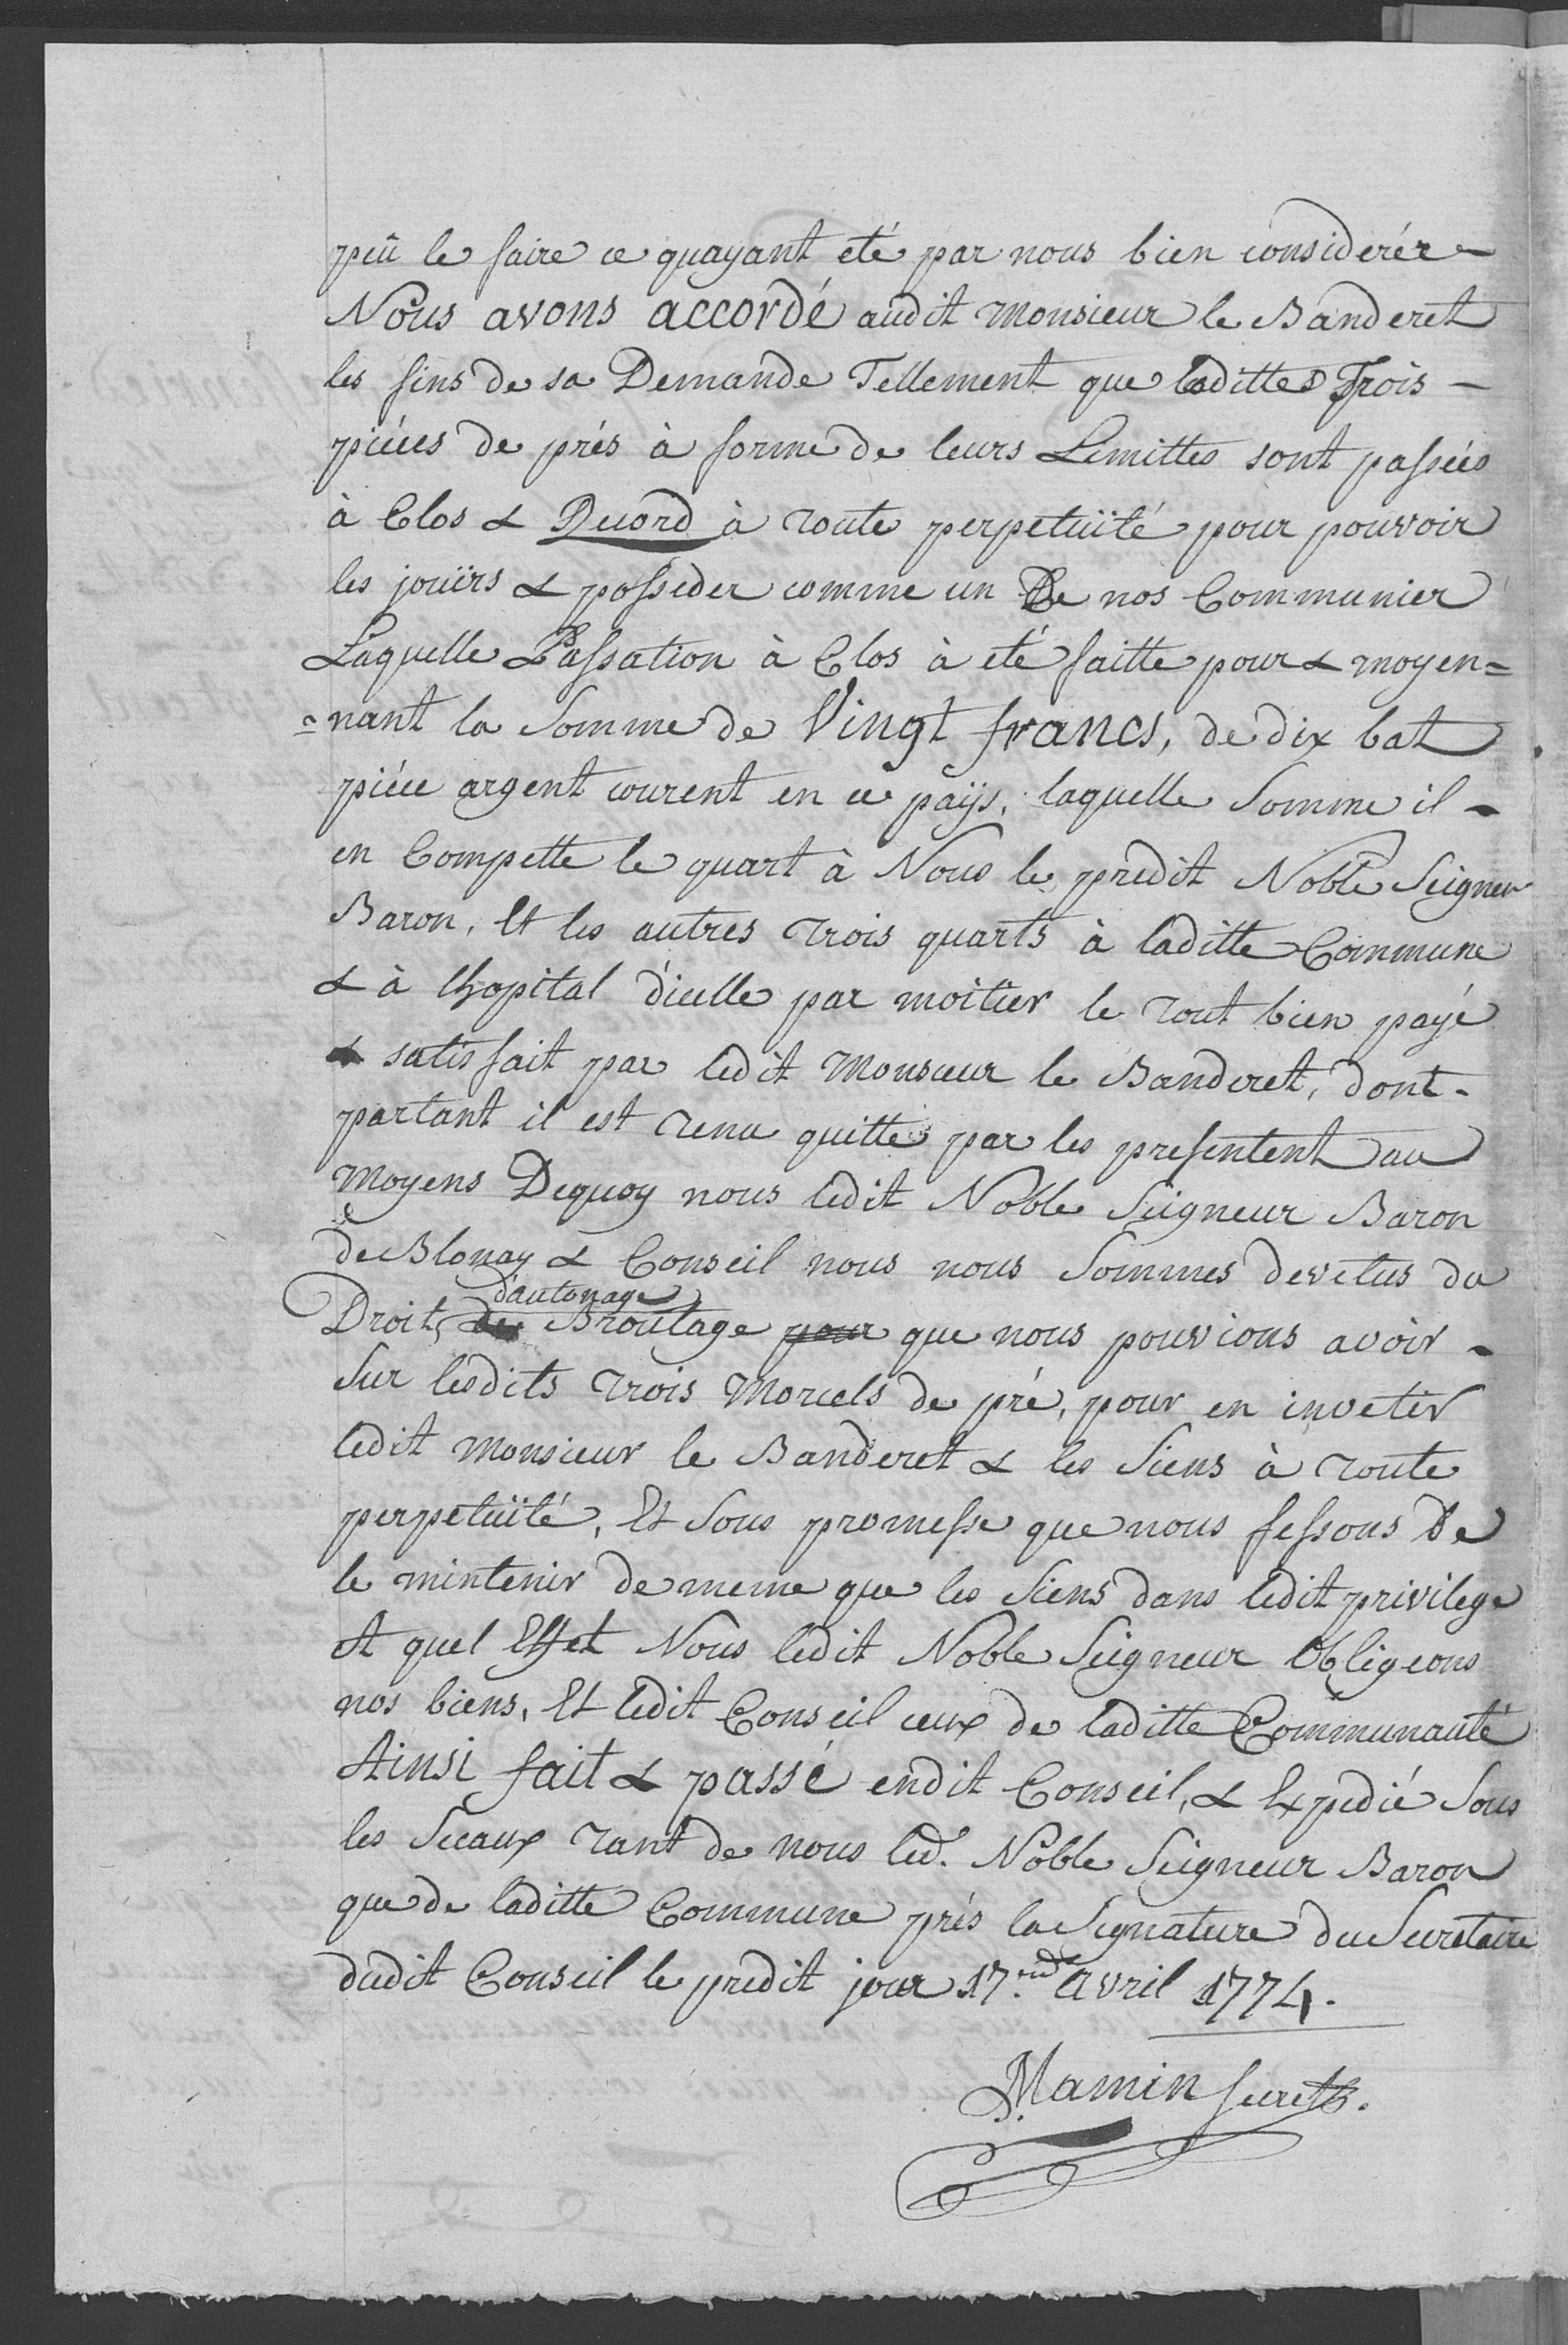 peû le faire ce quayant eté par nous bien considerér
Nous avons accordé audit Monsieur le Banderet
les fins de sa Demande Tellement que laditted Trois
piéces de prés à forme de leurs Limittes sont passées
à Clos & Record à toute perpetuïté pour pouvoir
les jouïrs & posseder comme un De nos Communier
Laquelle Passation à Clos à eté faitte pour & moyen=
=nant la Somme de Vingt francs, de dix bat
piéce argent courent en ce païs, laquelle Somme il
en Compette le quart à Nous le predit Noble Seigneur
Baron, Et les autres trois quarts à laditte Commune
& à lhopital d'icelle par moitier le tout bien payé
& satisfait par ledit Monsieur le Banderet, dont
partant il est tenu quitte par les presentent au
moyens Dequoy nous ledit Noble Seigneur Baron
de Blonay & Conseil nous nous Sommes devetus du
d'autonage
Droit de Broutage pour que nous pouvions avoir
Sur lesdits trois Morcels de pré, pour en invetir
ledit Monsieur le Banderet & les Siens à toute
perpetuïté, Et Sous promesse que nous fessons De
le mintenir de meme que les Siens dans ledit privilege
At quel Effet Nous ledit Noble Seigneur Obligeons
nos biens, Et ledit Conseil ceux de laditte Communauté
Ainsi fait & passé endit Conseil, & Expedié Sous
les Sceaux tant de nous led. Noble Seigneur Baron
que de laditte Commune prés la Signature du Secretaire
dudit Conseil le predit jour 17.me avril 1774.
Mamin secret.